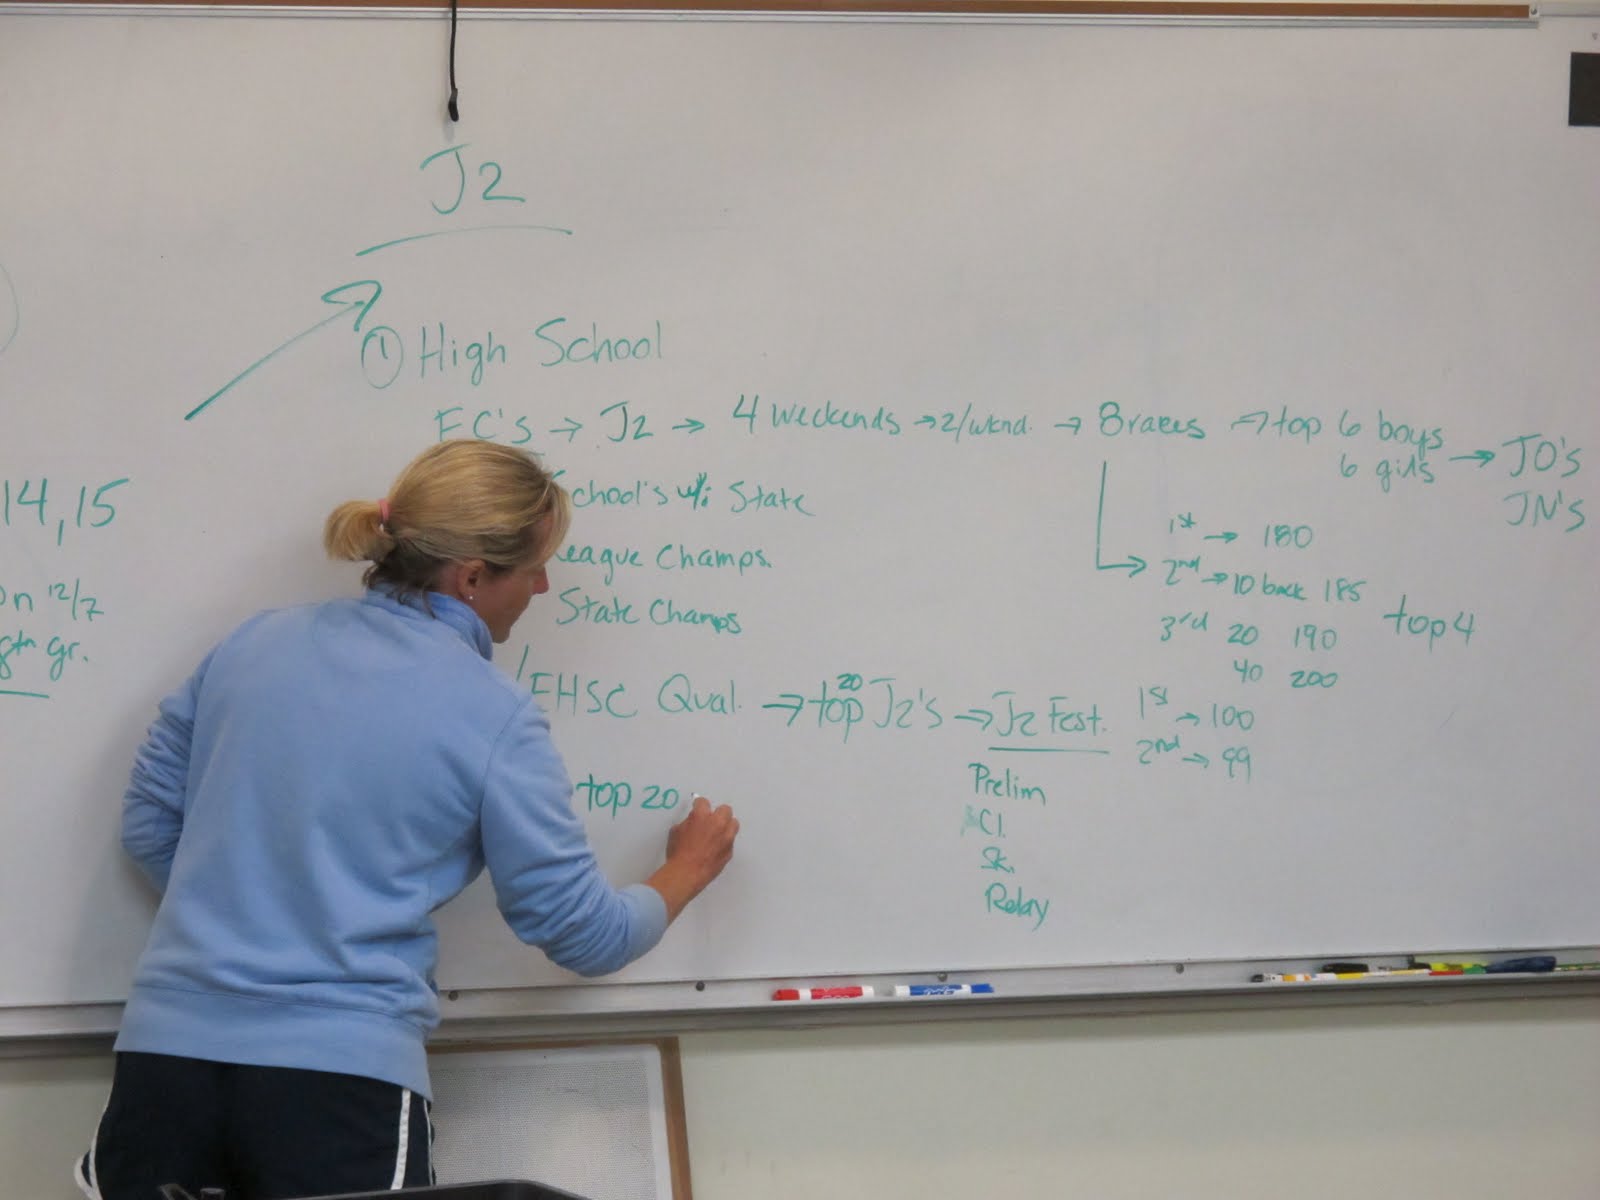 J2
① High School
EC's → J2 → 4 weekends → 2/wknd. → 8 races → top 6 boys
6 girls → JO's
JN's
chool's w/i State
eague Champs.
State Champs
1st → 180
2nd → 10 back 185
3rd 20 190
40 200
top 4
EHSC Qual. → top 20 J2's → J2 Fest.
1st → 100
2nd → 99
Prelim
Cl.
Sk.
Relay
top 20
14, 15
on 12/7
8th gr.